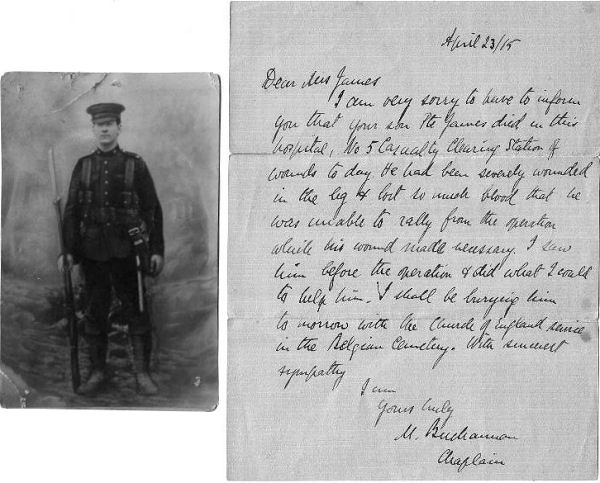 April 23/15
Dear Mrs James
I am very sorry to have to inform
you that your son Pte James died in this
hospital, No 5 Casualty Clearing Station of
wounds to day. He had been severely wounded
in the leg & lost so much blood that he
was unable to rally from the operation
which his wound made necessary. I saw
him before the operation & did what I could
to help him. I shall be burying him
to morrow with the Church of England service
in the Belgian Cemetery. With sincerest
sympathy
I am
Yours truly
M. Buchannan
Chaplain